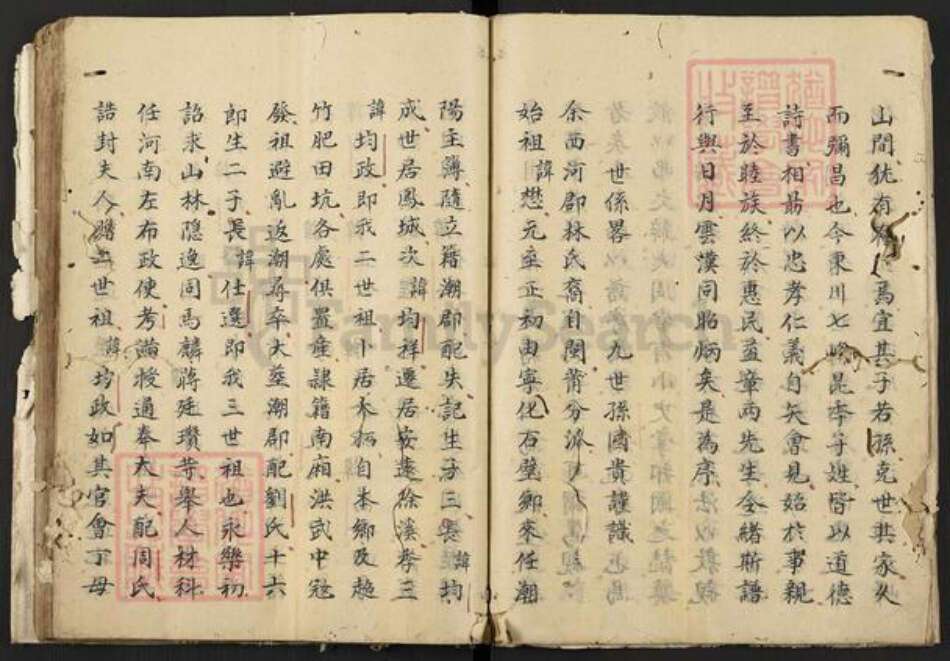 山間犹有焉宜其子若孫克世其家久
而彌昌也今東川七峰昆季子姓皆以道德
詩書相勗以忠孝仁義自矢會見始於事親
至於睦族終於惠民益章兩先生令緒斯譜
行與日月雲漢同昭炳矣是為序
世係畧
九世孫國貴謹識
余西河郡林氏裔自閩莆分派
始祖諱懋元至正初由寧化石壁鄉來任潮
陽主簿隨立籍潮郡配失記生子三長諱均
成世居鳳城次諱均祥遷居安遠徐溪孝三
諱均政即我二世祖卜居木柄自本鄉及趙
竹肥田坑各處俱置產隸籍南廂洪武中冠
發祖避亂返潮尋卒大塟潮郡配劉氏十六
郎生二子長諱仕選即我三世祖也永樂初
詔求山林隱逸同馬麟蔣廷瓚等舉人材科
任河南左布政使考滿授通奉大夫配周氏
誥封夫人贈二世祖諱均政如其官會丁母
FamilySearch